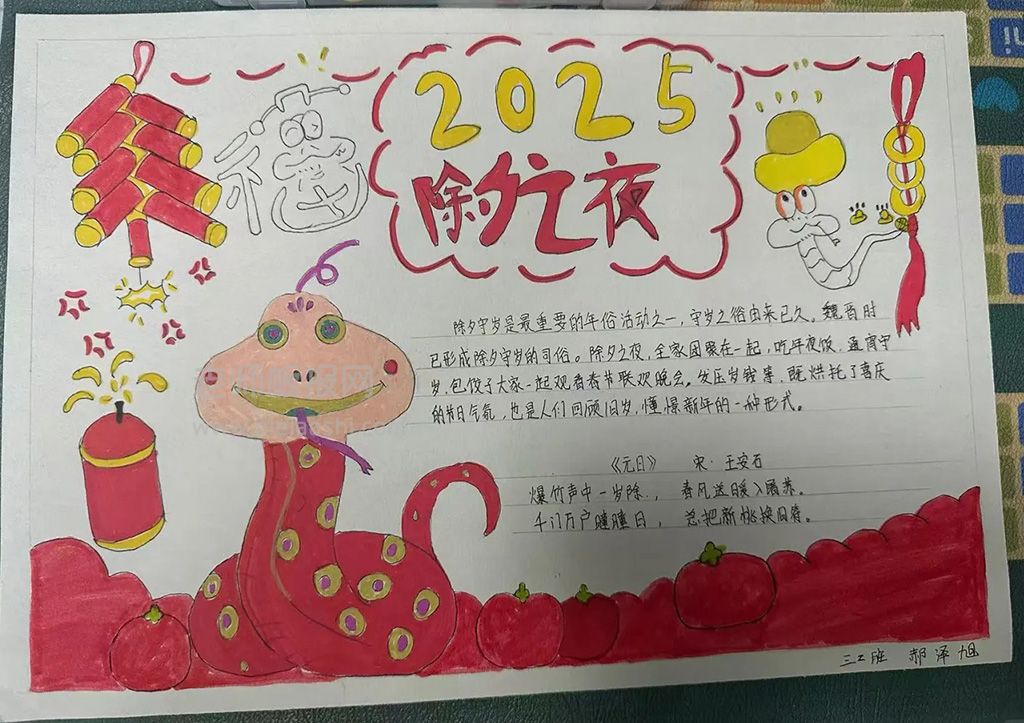 2025
除夕之夜
福
除夕守岁是最重要的年俗活动之一,守岁之俗由来已久。魏晋时
已形成除夕守岁的习俗。除夕之夜,全家团聚在一起,吃年夜饭,通宵守
岁,包饺子大家一起观看春节联欢晚会。发压岁钱等,既烘托了喜庆
的节日气氛,也是人们回顾旧岁,憧憬新年的一种形式。
《元日》 宋·王安石
爆竹声中一岁除, 春风送暖入屠苏。
千门万户瞳瞳日, 总把新桃换旧符。
三2班 郝泽旭